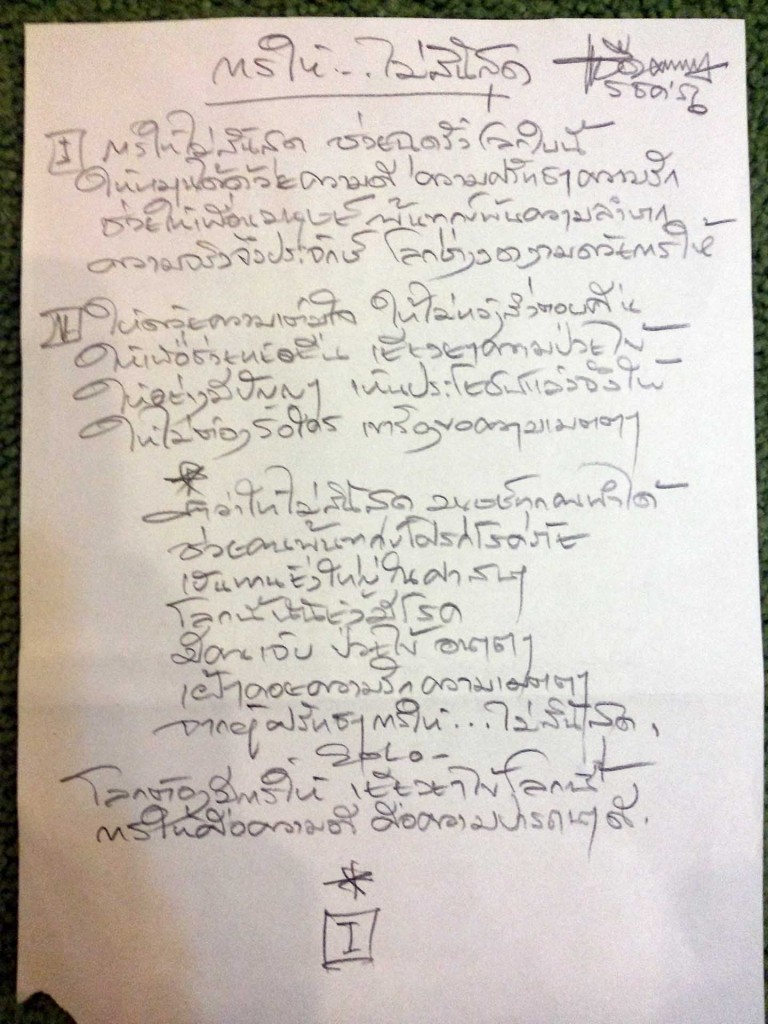 การให้... ไม่สิ้นสุด
I การให้ไม่สิ้นสุด ช่วยฉุดรั้งโลกใบนี้
ให้หมุนได้ด้วยความดี ความศรัทธา ความรัก
ช่วยให้เพื่อนมนุษย์ พ้นทุกข์พ้นความลำบาก
ความจริงจึงประจักษ์ โลกช่างงดงามด้วยการให้
II ให้ด้วยความเต็มใจ ให้ไม่หวังสิ่งตอบคืน
ให้เพื่อช่วยคนอื่น เยียวยาความป่วยไข้
ให้อย่างมีปัญญา เห็นประโยชน์แล้วจึงให้
ให้ไม่ต้องรอใคร เขาร้องขอความเมตตา
*
คำว่าให้ไม่สิ้นสุด มนุษย์ทุกคนทำได้
ช่วยคนพ้นทุกข์โศกโรคภัย
เป็นทานยิ่งใหญ่ในศาสนา
โลกนี้นั้นยังมีโรค
มีคนเจ็บ ป่วยไข้ อนาถา
เฝ้าคอยความรักความเมตตา
จากผู้ศรัทธา การให้...ไม่สิ้นสุด.
- SOLO -
โลกต้องมีการให้ เยียวยาไข้โลกนี้
การให้คือความดี คือความปรารถนาดี.
*
I